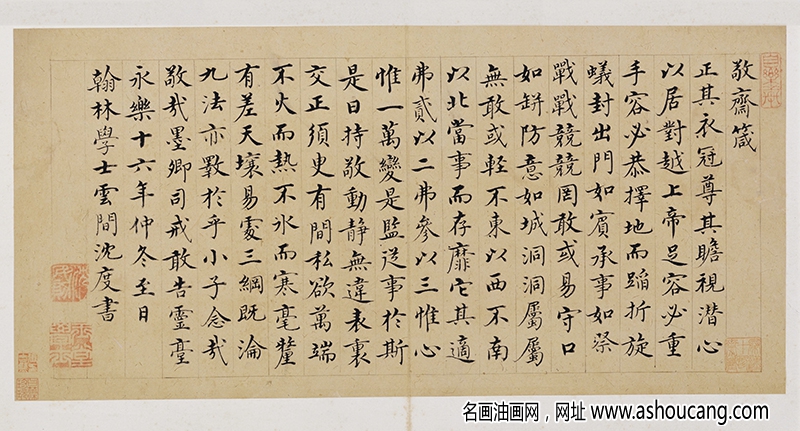 敬齋箴
正其衣冠尊其瞻視潛心
以居對越上帝足容必重
手容必恭擇地而蹈折旋
蟻封出門如賓承事如祭
戰戰兢兢罔敢或易守口
如缾防意如城洞洞屬屬
無敢或輕不東以西不南
以北當事而存靡它其適
弗貳以二弗參以三惟心
惟一萬變是監從事於斯
是曰持敬動靜無違表裏
交正須臾有間私欲萬端
不火而熱不冰而寒毫釐
有差天壤易處三綱既淪
九法亦斁於乎小子念哉
敬哉墨卿司戒敢告靈臺
永樂十六年仲冬至日
翰林學士雲間沈度書
名画油画网，网址 www.ashoucang.com